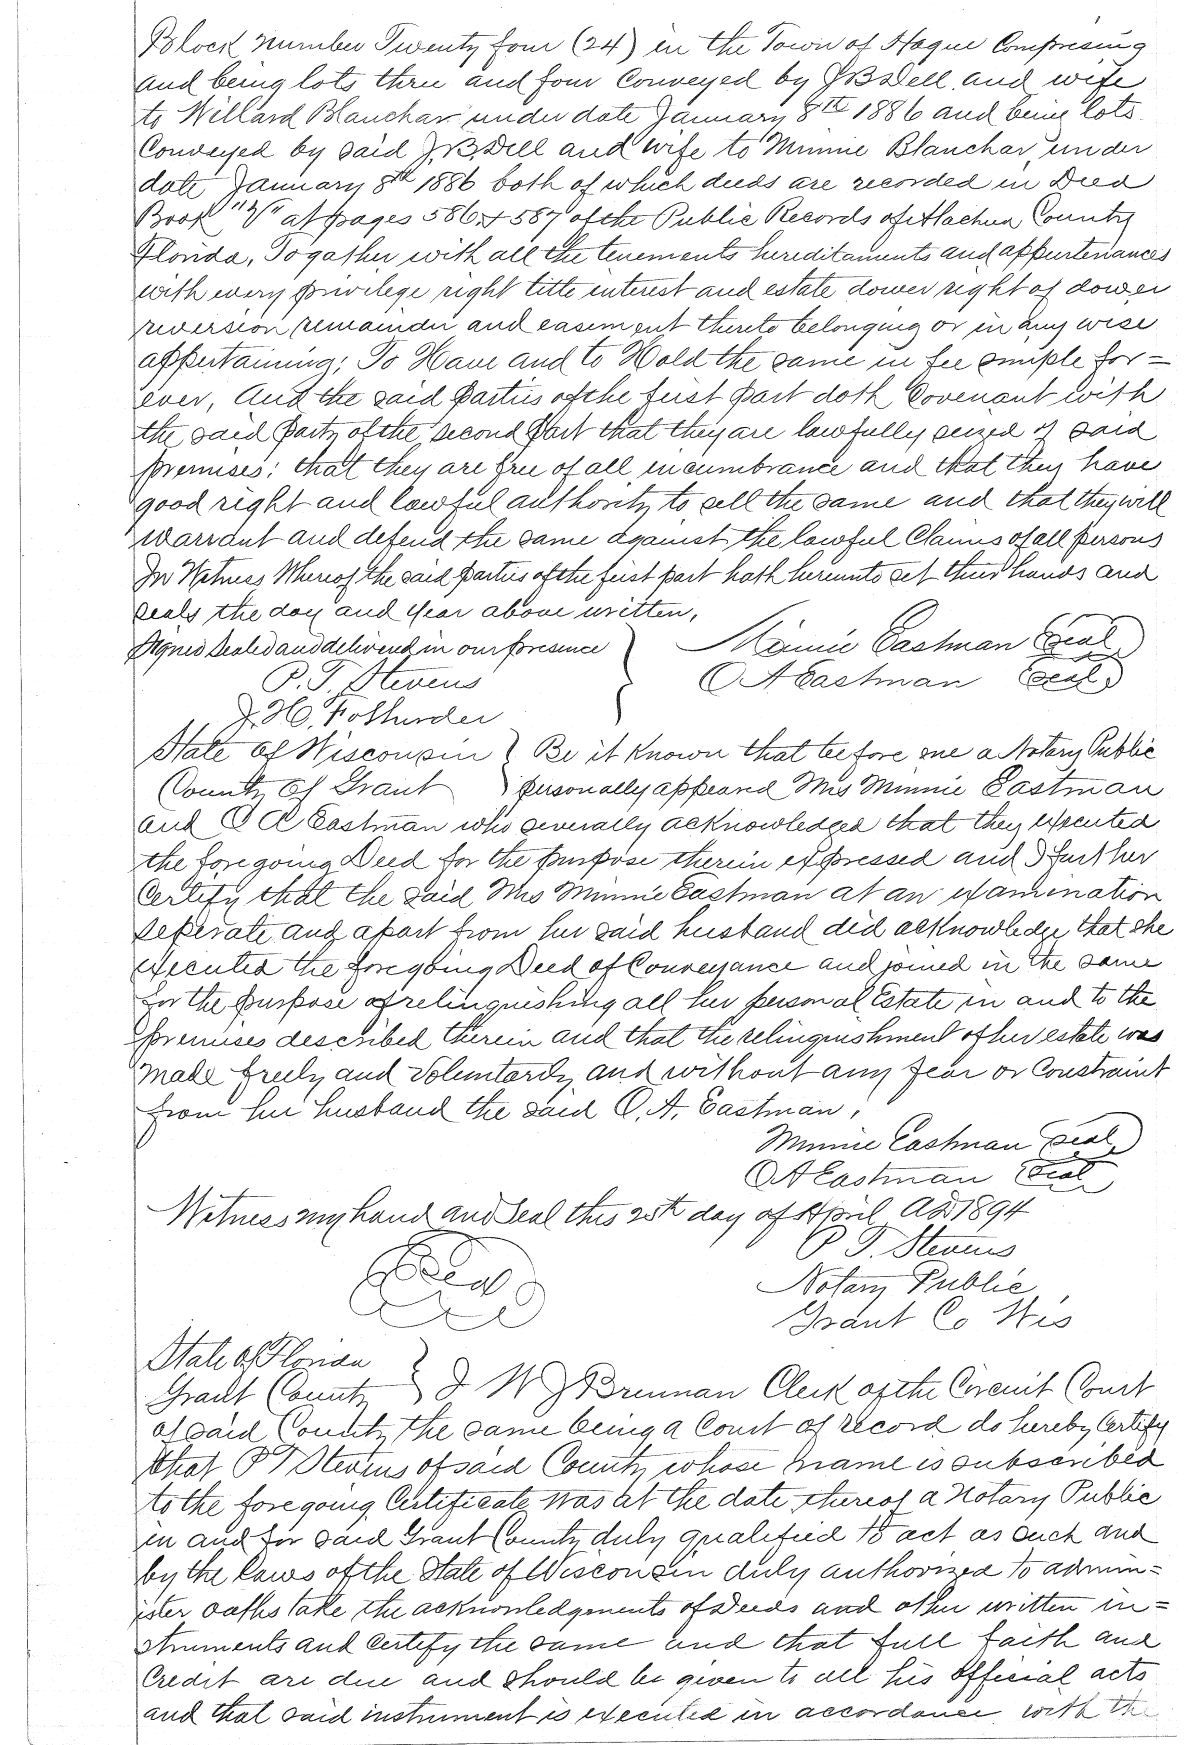 Block number Twenty four (24) in the Town of Hague Comprising
and being lots three and four Conveyed by J B Dell and wife
to Willard Blanchar under date January 8th 1886 and being lots
Conveyed by said J. B. Dell and wife to Minnie Blanchar under
date January 8th 1886 both of which deeds are recorded in Deed
Book " " at pages 586 & 587 of the Public Records of Alachua County
Florida, Togather with all the tenements hereditaments and appurtenances
with every privilege right title interest and estate dower right of dower
reversion remainder and easement thereto belonging or in any wise
appertaining: To Have and to Hold the same in fee simple for=
ever, And the said parties of the first part doth Covenant with
the said party of the second part that they are lawfully seized of said
premises: that they are free of all incumbrance and that they have
good right and lawful authority to sell the same and that they will
warrant and defend the same against the lawful Claims of all persons
In Witness Whereof the said parties of the first part hath hereunto set their hands and
seals the day and year above written,
Signed Sealed and delivered in our presence } Minnie Eastman (Seal)
P. T. Stevens O A Eastman (Seal)
J. H.
State of Wisconsin } Be it Known that before me a Notary Public
County of Grant } personally appeared Mrs Minnie Eastman
and O A Eastman who severally acknowledged that they executed
the foregoing Deed for the purpose therein expressed and I further
Certify that the said Mrs Minnie Eastman at an examination
seperate and apart from her said husband did acknowledge that she
executed the foregoing Deed of Conveyance and joined in the same
for the purpose of relinquishing all her personal Estate in and to the
premises described therein and that the relinquishment of her estate was
made freely and Voluntarily and without any fear or Constraint
from her husband the said O. A. Eastman,
Minnie Eastman (Seal)
O A Eastman (Seal)
Witness my hand and Seal this 25th day of April AD 1894
(Seal) P T. Stevens
Notary Public,
Grant Co Wis
State of Florida }
Grant County } I W J Brennan Clerk of the Circuit Court
of said County the same being a Court of record do hereby Certify
that P T Stevens of said County whose name is subscribed
to the foregoing Certificate was at the date thereof a Notary Public
in and for said Grant County duly qualified to act as such and
by the Laws of the State of Wisconsin duly authorized to admin=
ister oaths take the acknowledgements of Deeds and other written in=
struments and Certify the same and that full faith and
Credit are due and should be given to all his official acts
and that said instrument is executed in accordance with the